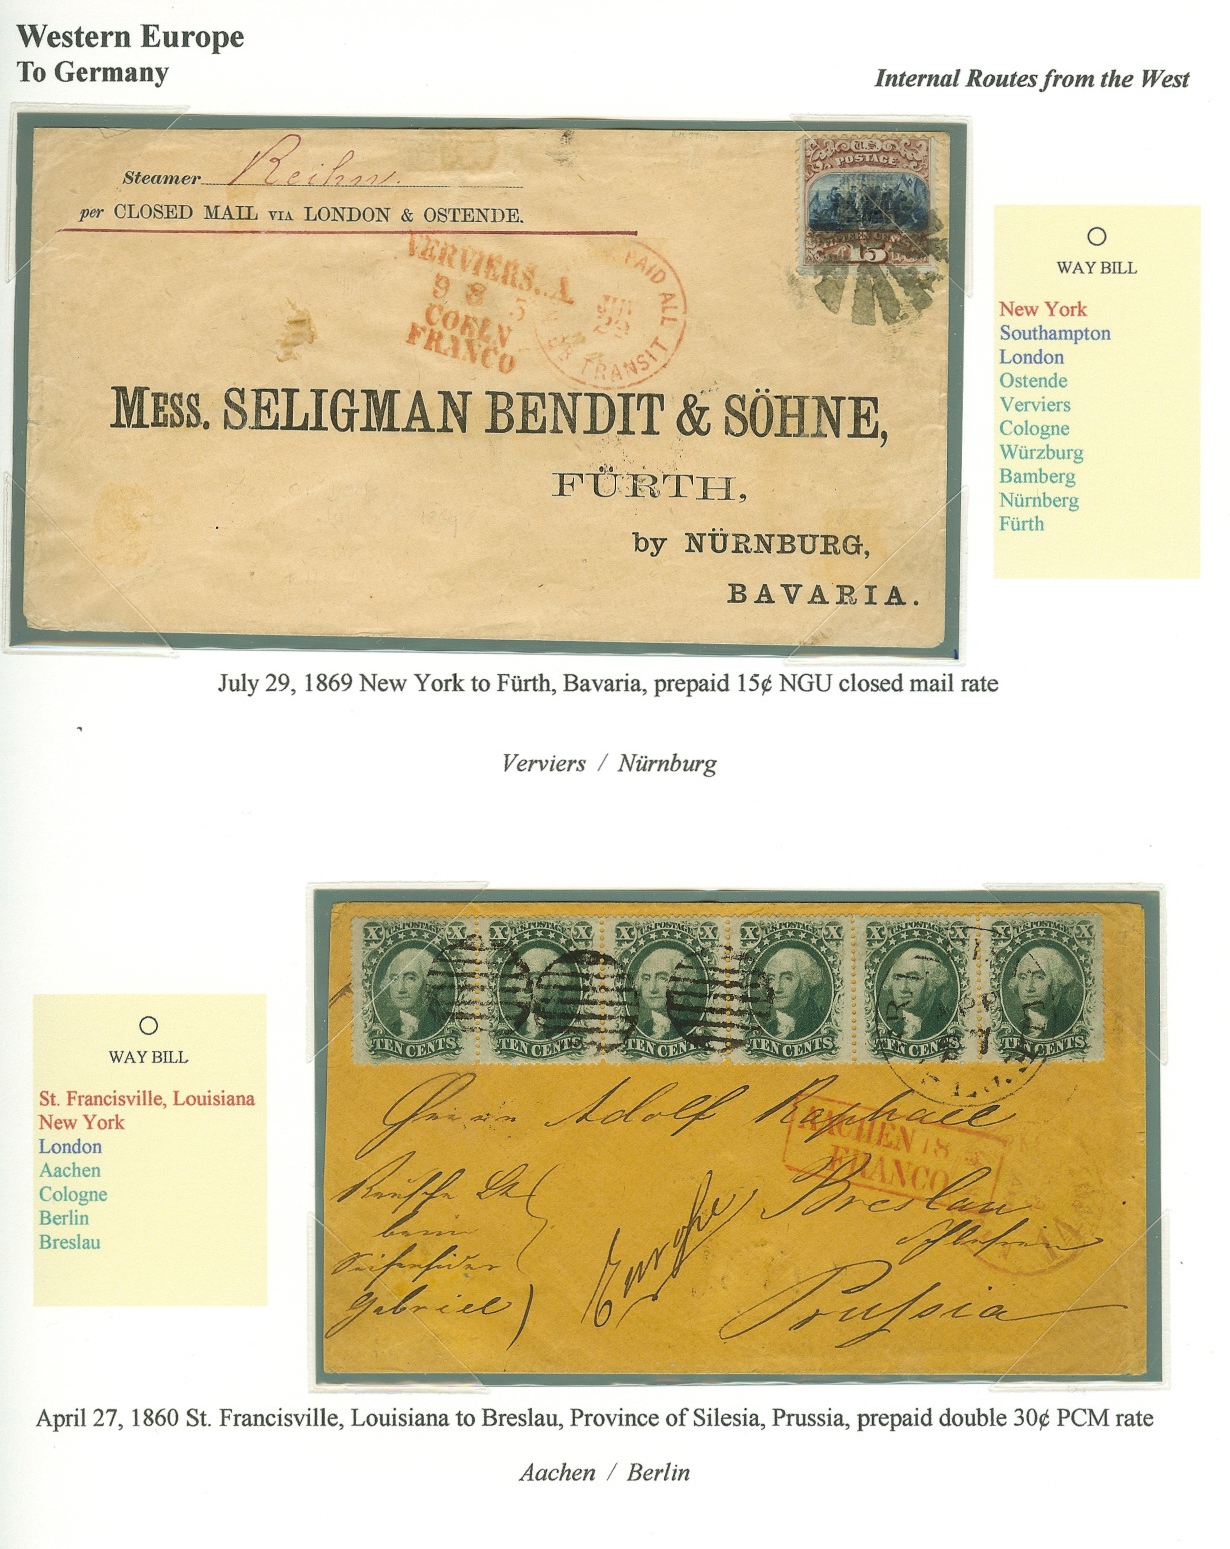 Western Europe
To Germany
Internal Routes from the West
Steamer
per CLOSED MAIL VIA LONDON & OSTENDE.
U.S.
POSTAGE
15
VERVIERS..A.
9 8 3
COELN
FRANCO
PAID ALL
22
TRANSIT
MESS. SELIGMAN BENDIT & SÖHNE,
FÜRTH,
by NÜRNBURG,
BAVARIA.
WAY BILL
New York
Southampton
London
Ostende
Verviers
Cologne
Würzburg
Bamberg
Nürnberg
Fürth
July 29, 1869 New York to Fürth, Bavaria, prepaid 15¢ NGU closed mail rate
Verviers / Nürnburg
X U.S. POSTAGE X X U.S. POSTAGE X X U.S. POSTAGE X X U.S. POSTAGE X X U.S. POSTAGE X X U.S. POSTAGE X
TEN CENTS. TEN CENTS. TEN CENTS. TEN CENTS. TEN CENTS. TEN CENTS.
Herrn Adolf Raphael
AACHEN 18
FRANCO
Breslau
Schlesien
Prussia
Europe
beim
Gabriel
WAY BILL
St. Francisville, Louisiana
New York
London
Aachen
Cologne
Berlin
Breslau
April 27, 1860 St. Francisville, Louisiana to Breslau, Province of Silesia, Prussia, prepaid double 30¢ PCM rate
Aachen / Berlin